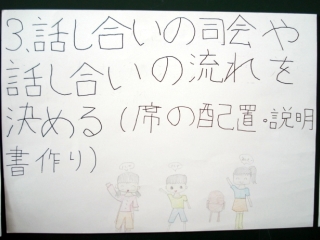 3.話し合いの司会や
話し合いの流れを
決める(席の配置・説明
書作り)